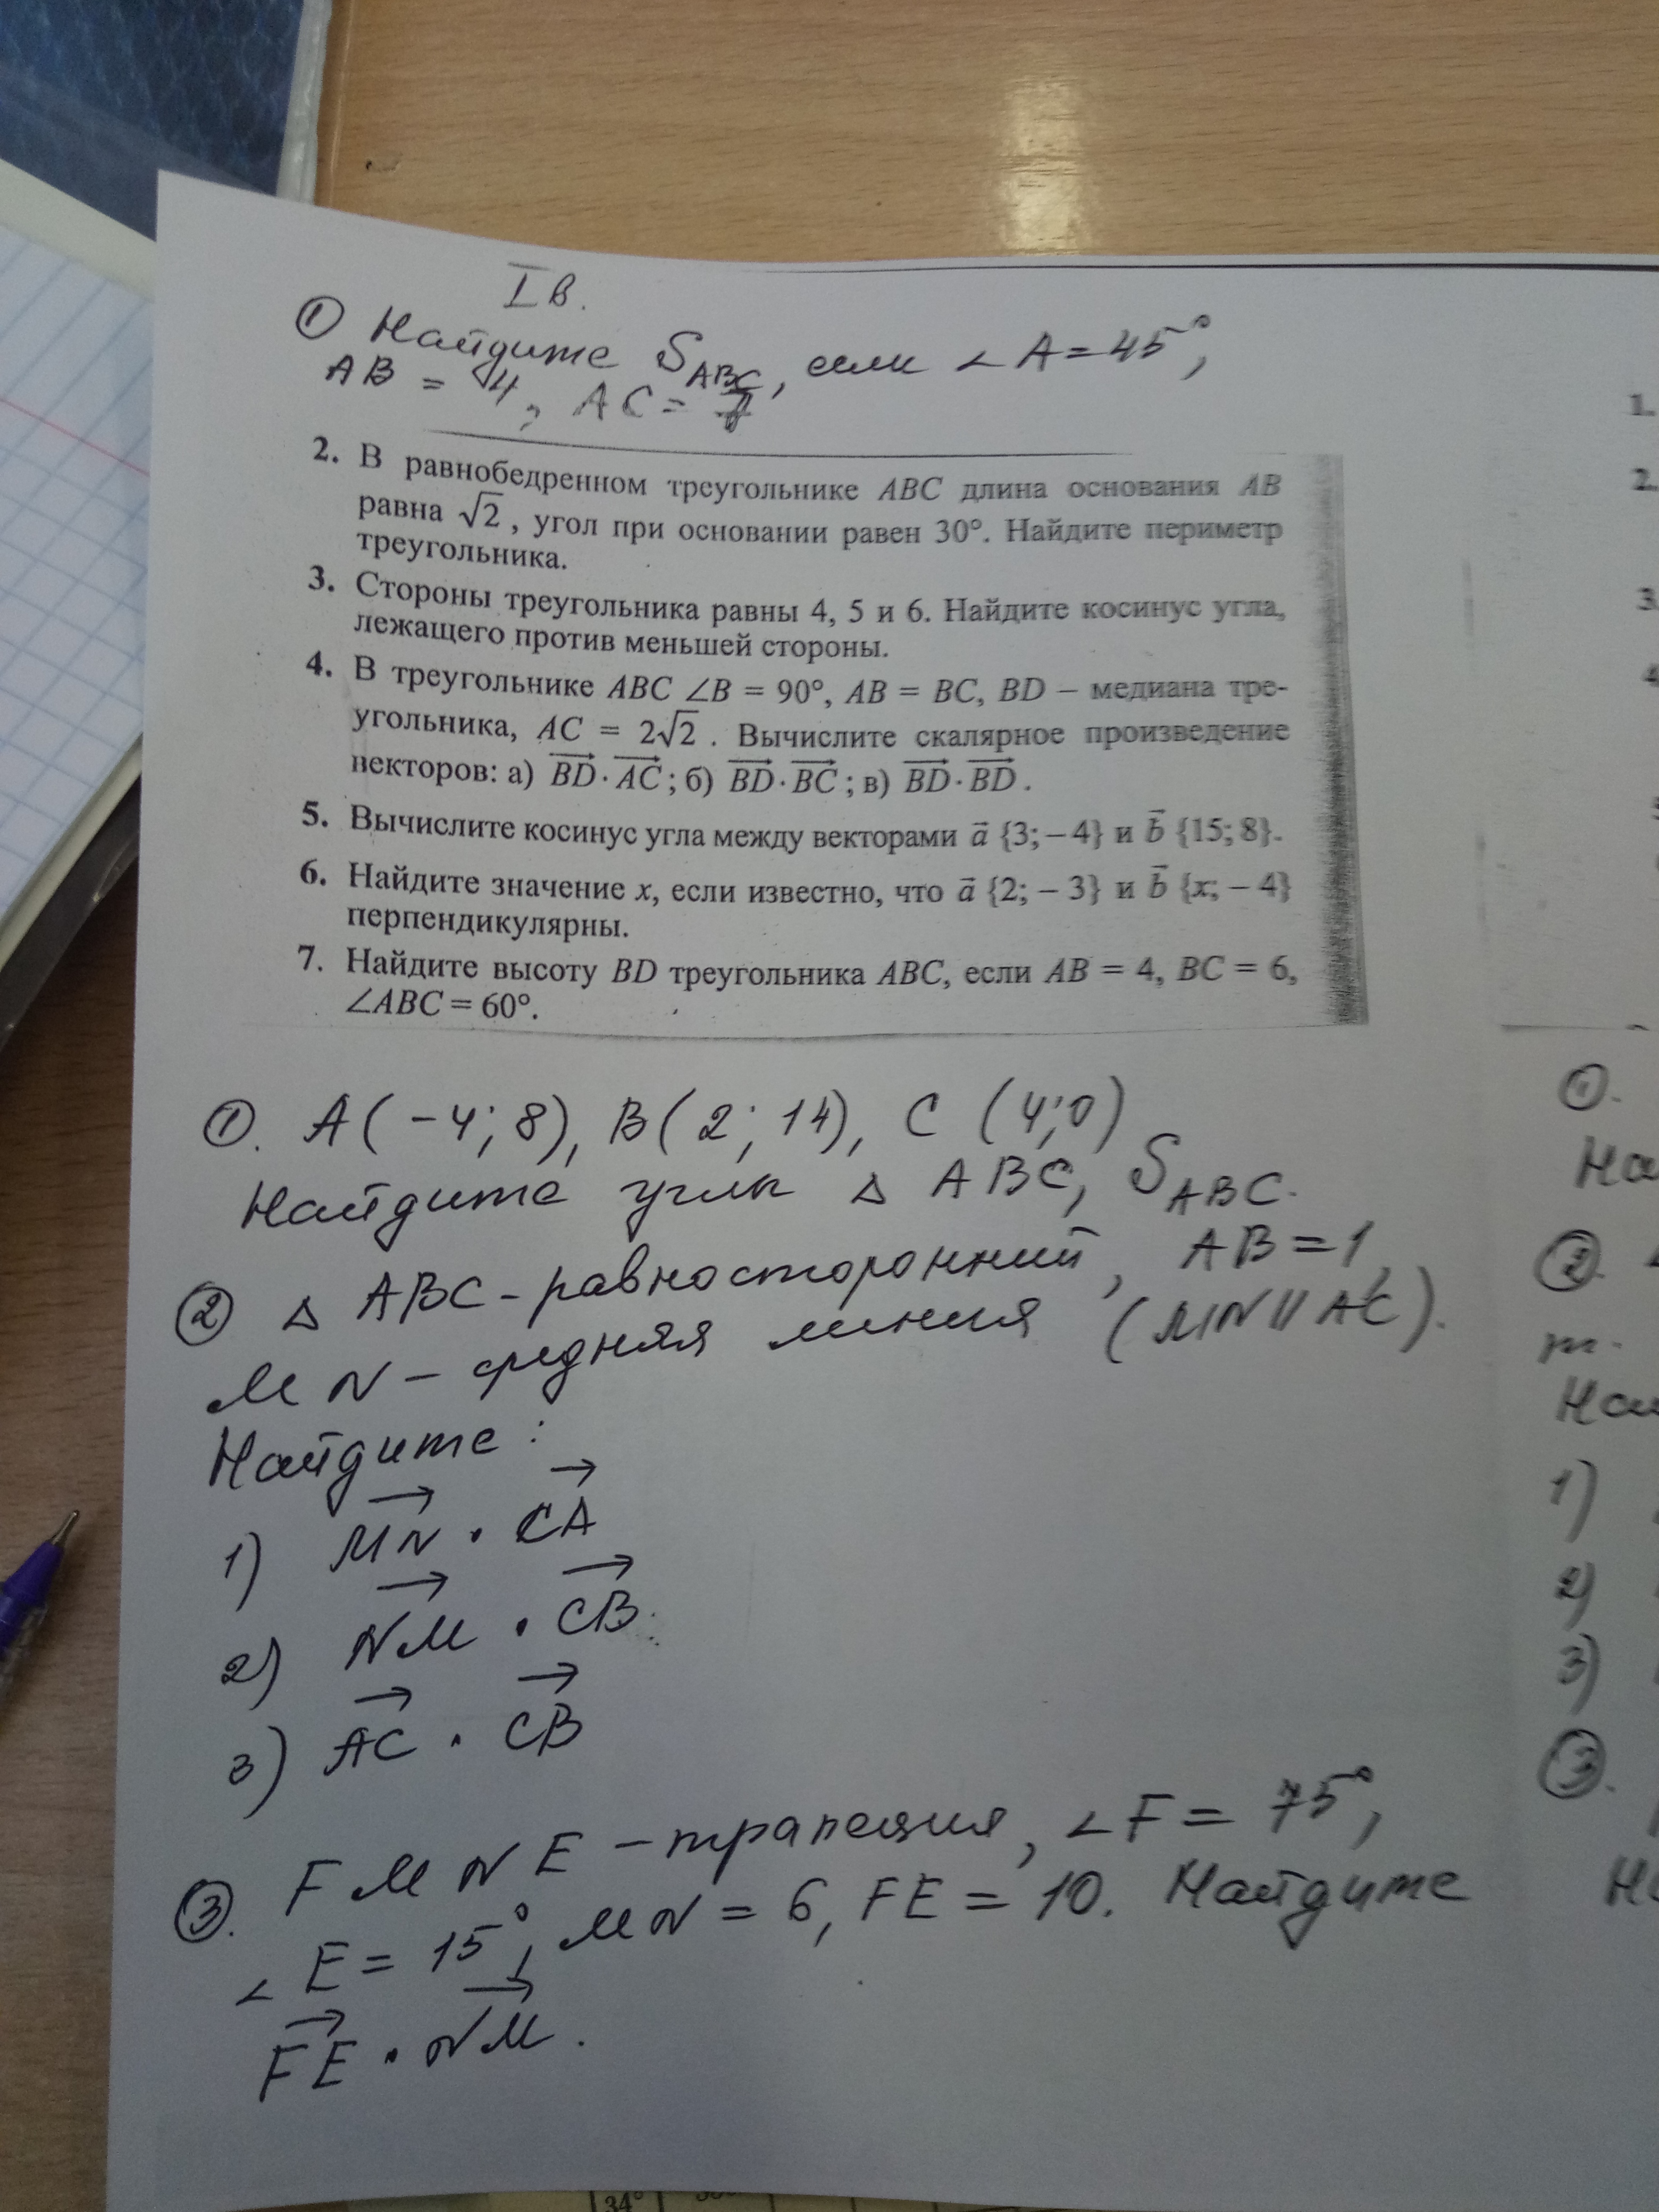 I в.
① Найдите S_ABC, если ∠A = 45°,
AB = 4, AC = 7
2. В равнобедренном треугольнике ABC длина основания AB
равна √2, угол при основании равен 30°. Найдите периметр
треугольника.
3. Стороны треугольника равны 4, 5 и 6. Найдите косинус угла,
лежащего против меньшей стороны.
4. В треугольнике ABC ∠B = 90°, AB = BC, BD – медиана тре-
угольника, AC = 2√2 . Вычислите скалярное произведение
векторов: а) BD · AC ; б) BD · BC ; в) BD · BD .
5. Вычислите косинус угла между векторами a {3; – 4} и b {15; 8}.
6. Найдите значение x, если известно, что a {2; – 3} и b {x; – 4}
перпендикулярны.
7. Найдите высоту BD треугольника ABC, если AB = 4, BC = 6,
∠ABC = 60°.
①. A(-4; 8), B(2; 14), C (4; 0)
Найдите углы Δ ABC, S_ABC.
② Δ ABC - равносторонний, AB = 1,
MN - средняя линия (MN || AC).
Найдите:
1) MN · CA
2) NM · CB.
3) AC · CB
③. FMNE - трапеция, ∠F = 75°,
∠E = 15°, MN = 6, FE = 10. Найдите
FE · NM.
1.
2.
3.
4
①.
На
②.
т.
На
1)
2)
3)
③.
На
34°